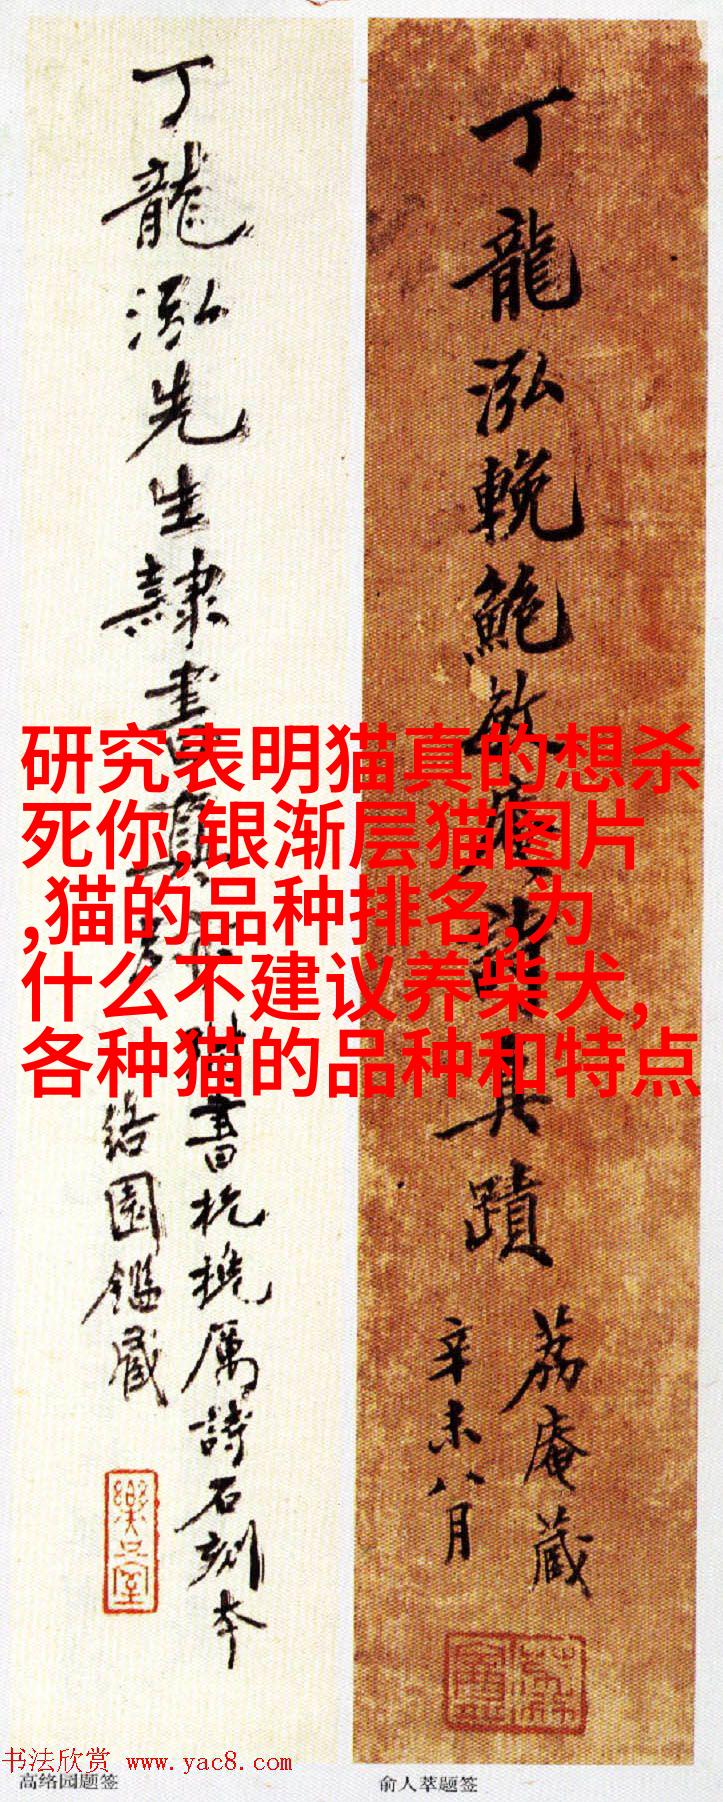 丁龍泓先生隷書真
書杭堍厲詩石刻本
絡園鑑藏
丁龍泓輓鮑敬齋詩真蹟
荔庵藏
辛未八月
研究表明猫真的想杀
死你,银渐层猫图片
,猫的品种排名,为
什么不建议养柴犬,
各种猫的品种和特点
书法欣赏 www.yac8.com
高络园题签
俞人萃题签